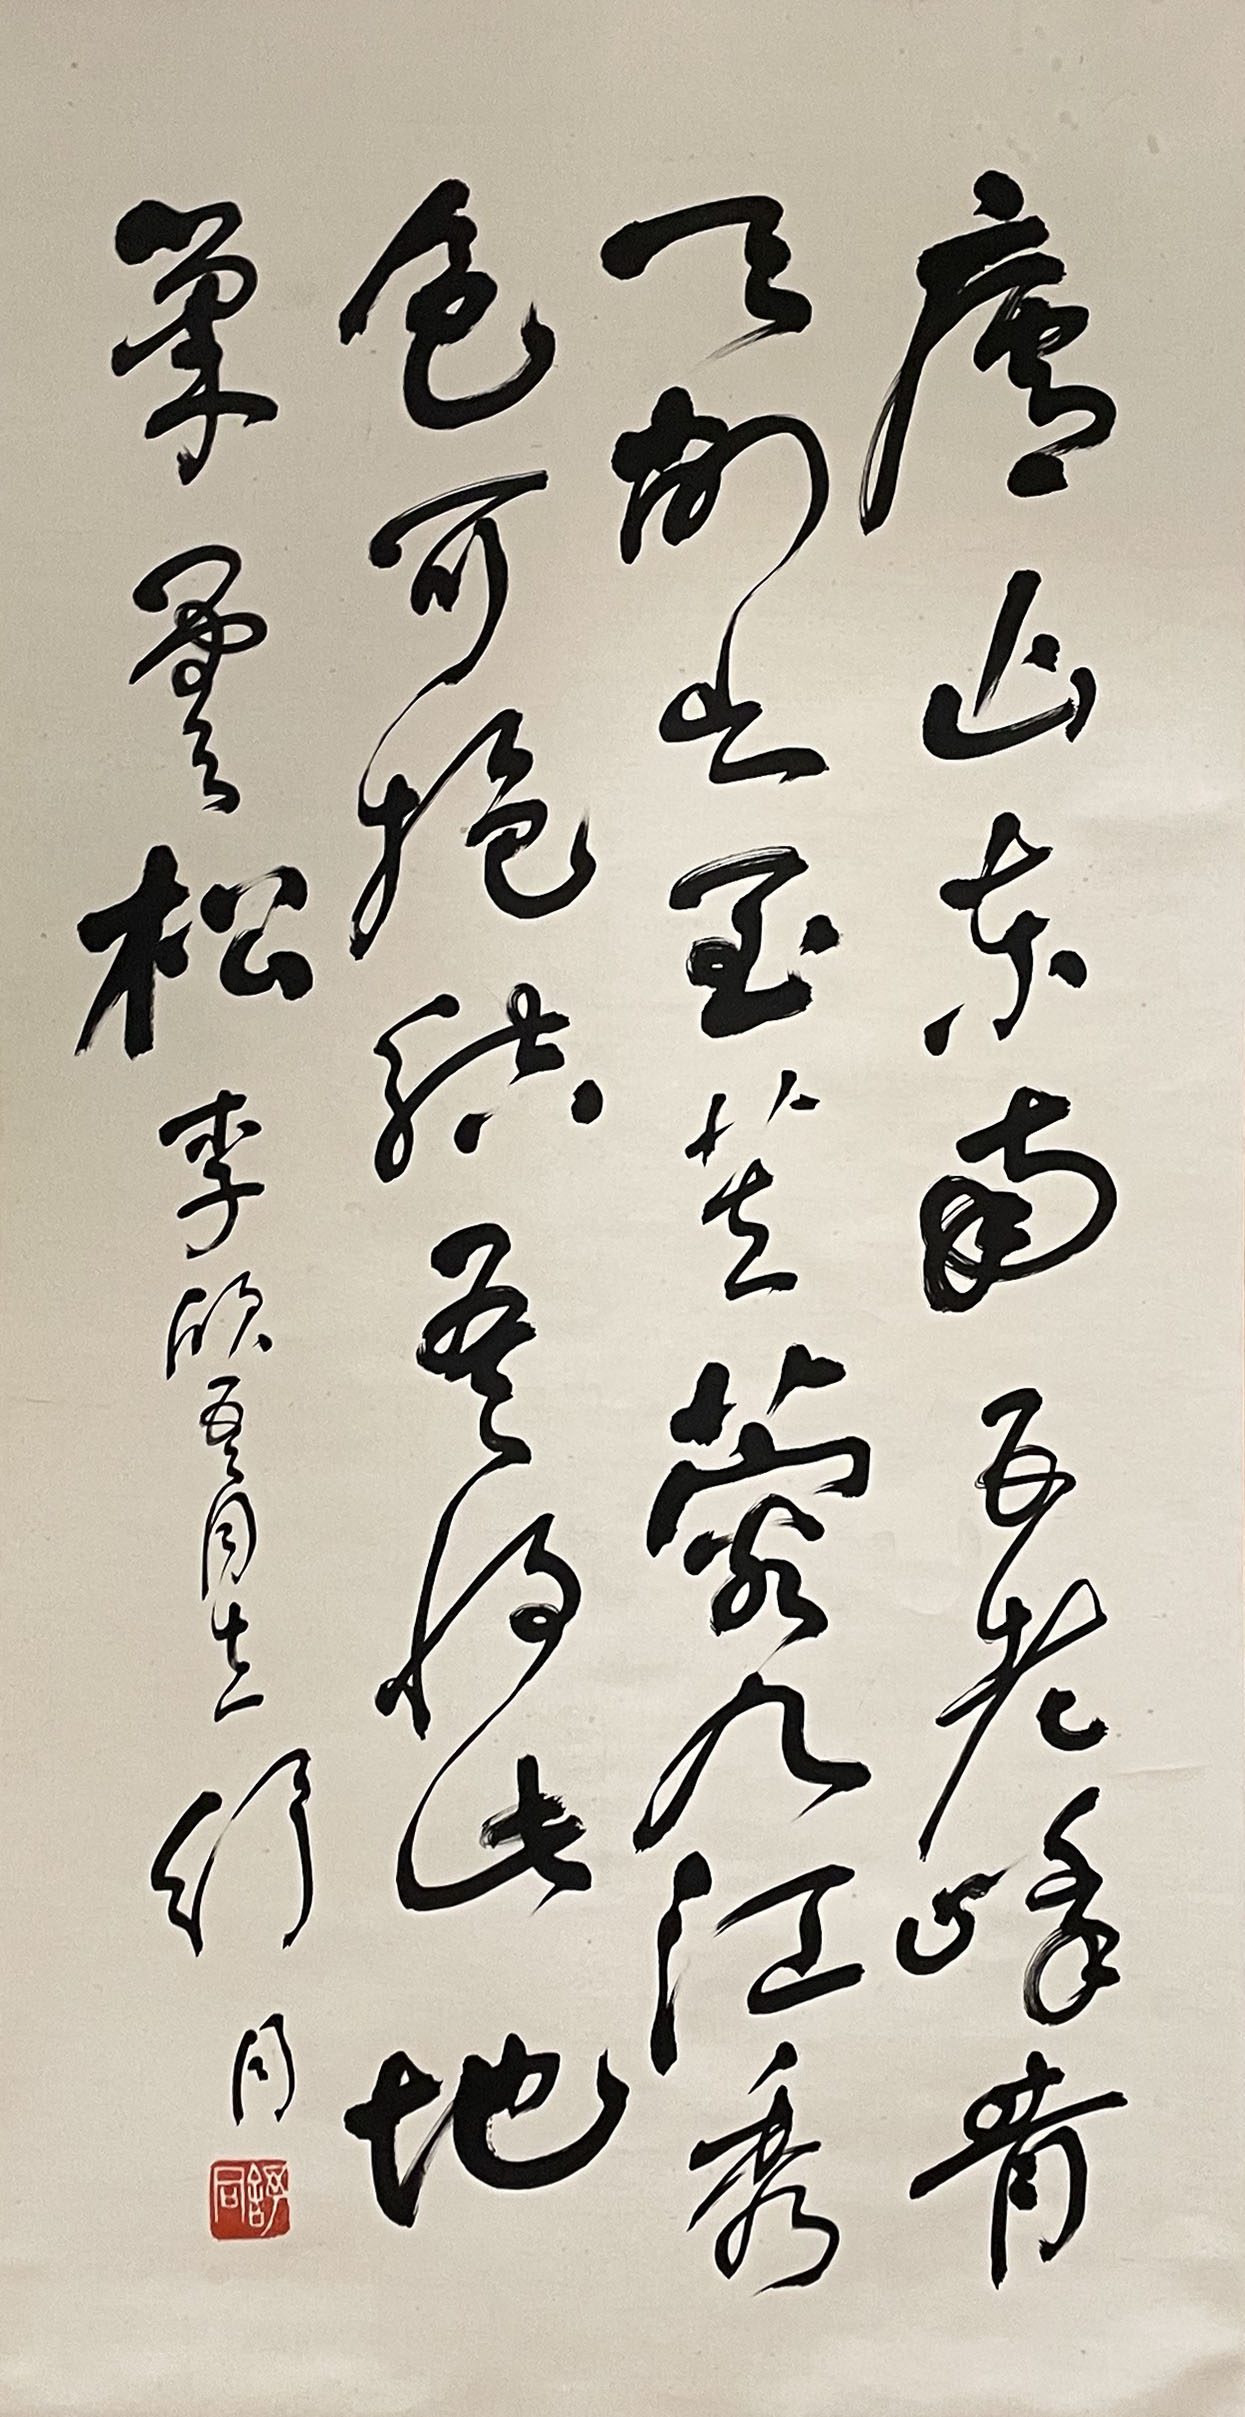 廬山东南五老峰青
天削出金芙蓉九江秀
色可攬結吾將此地
巢雲松 李欣吾同志 舒同
舒同